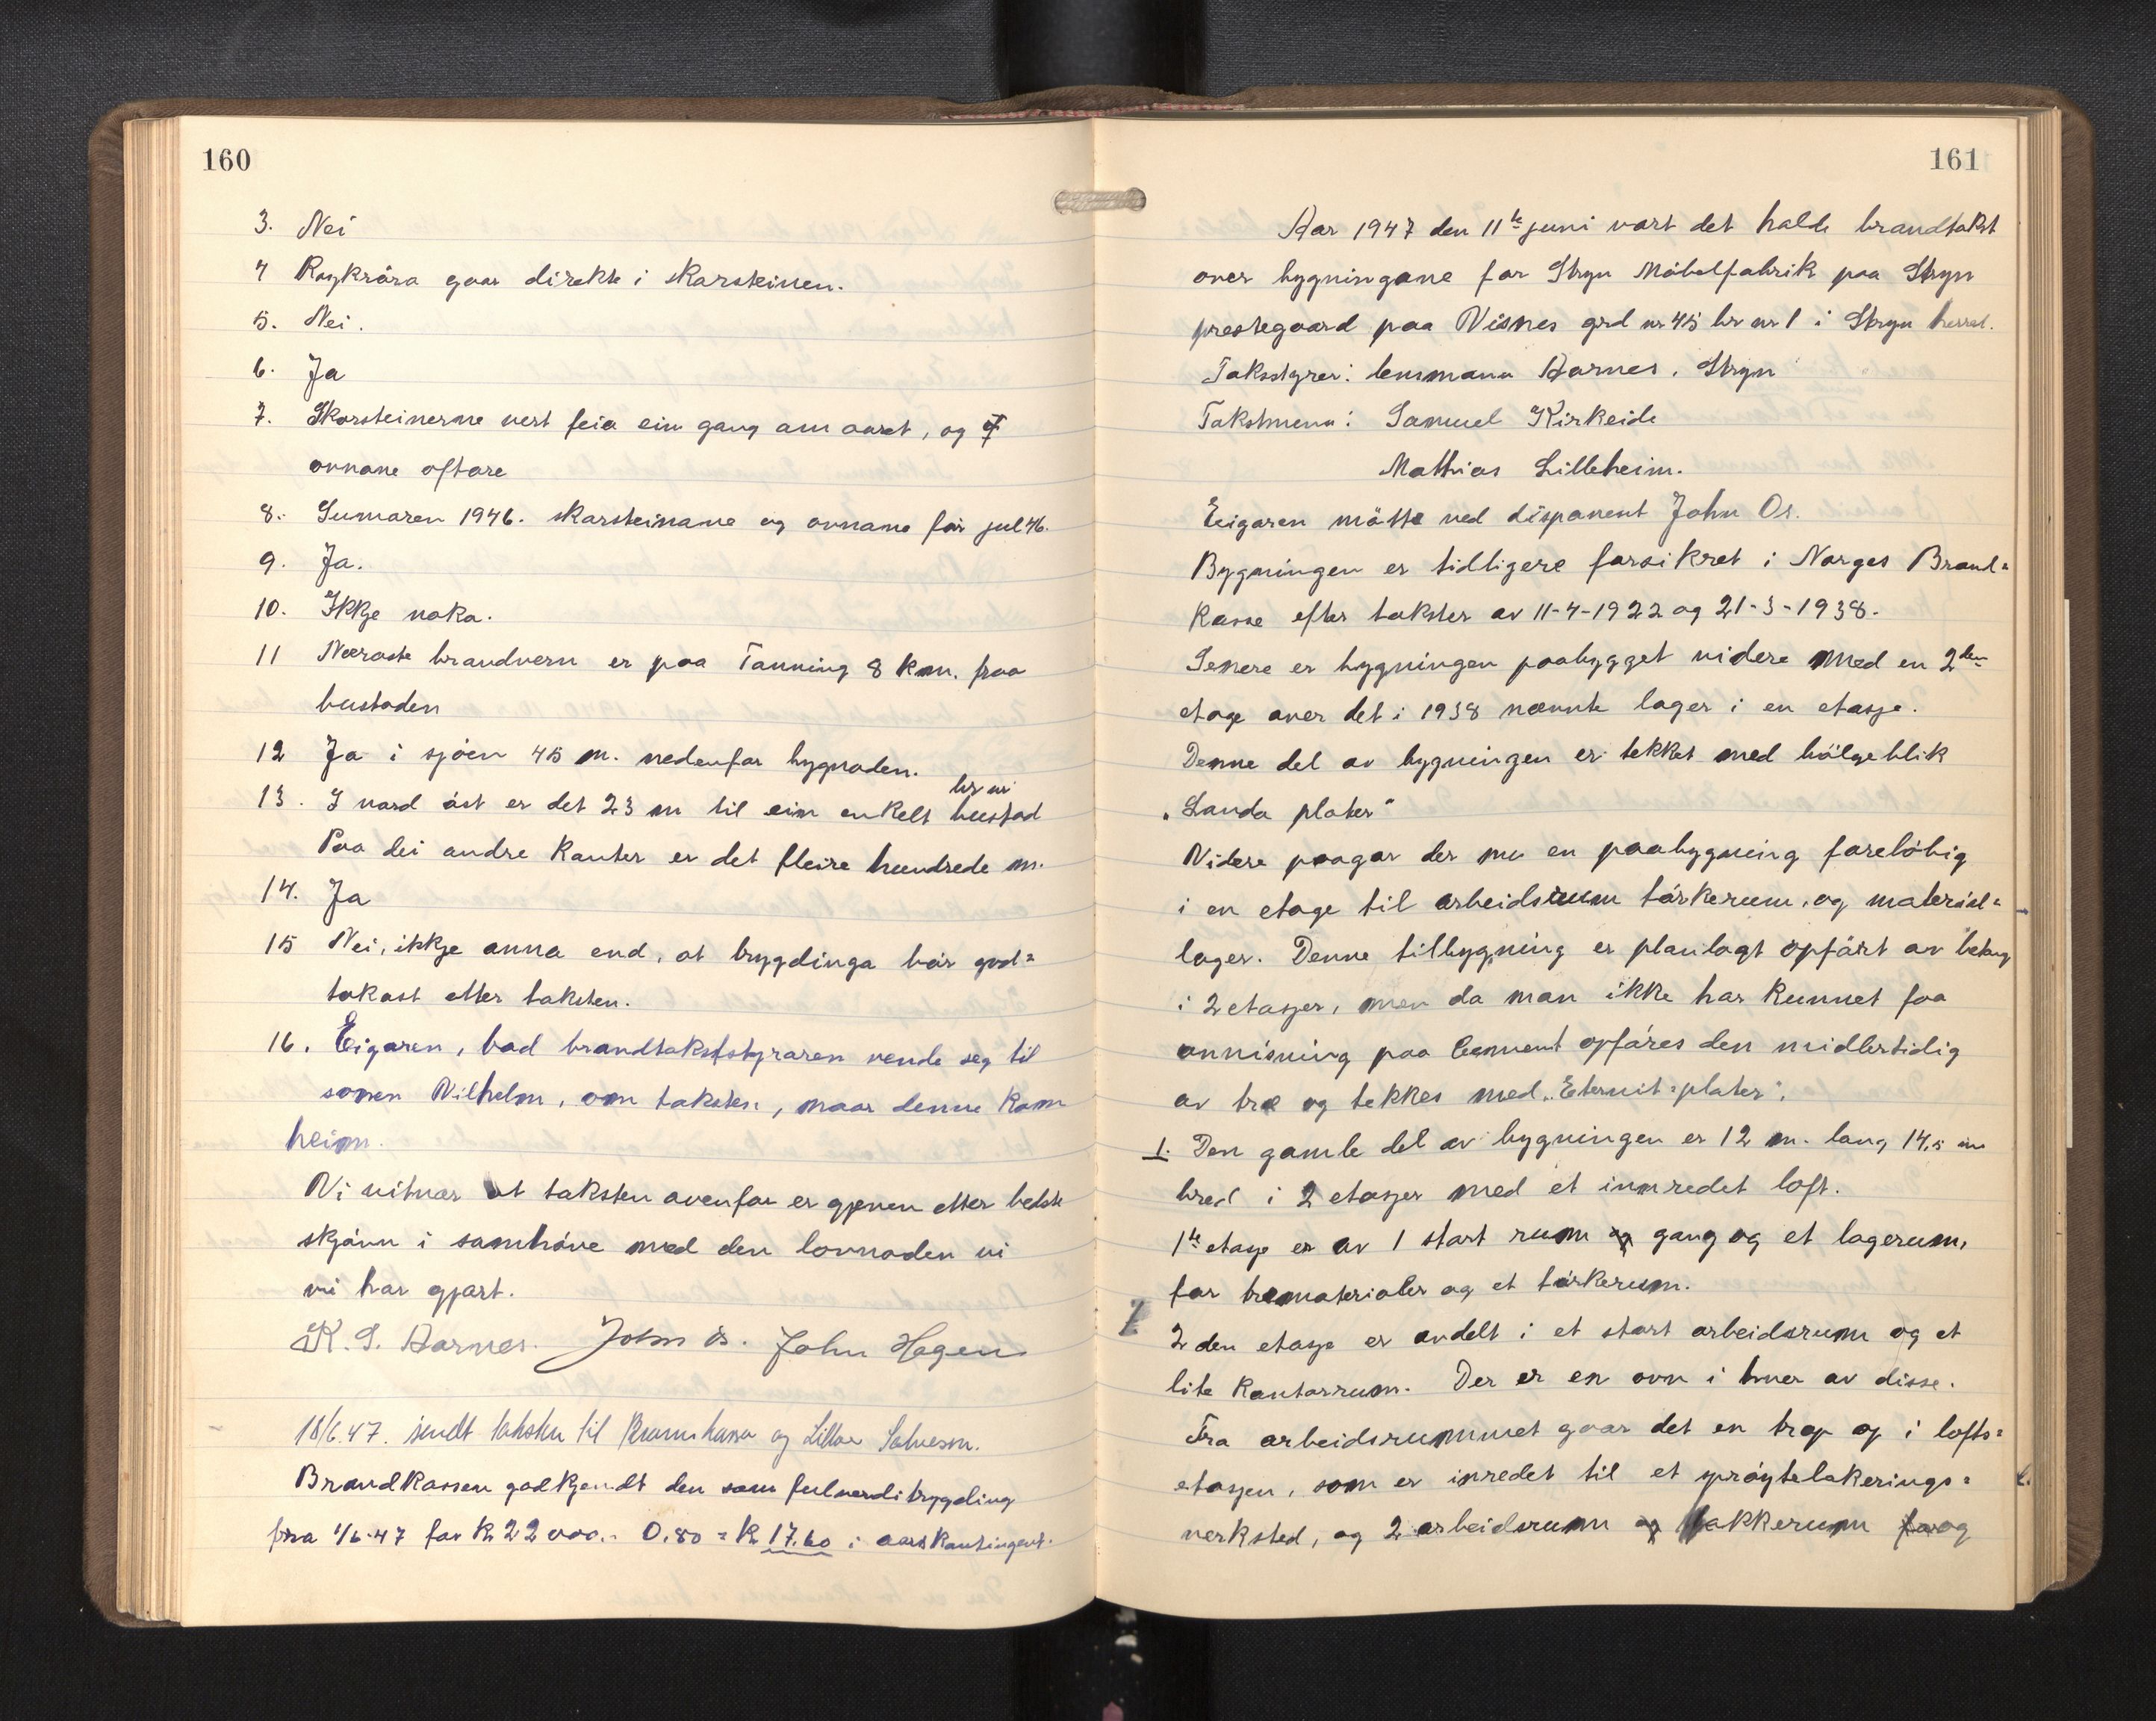 160
3. Nei
4 Røykröra gaar direkte i skarsteinen.
5. Nei.
6. Ja
7. Skorsteinerne vert feia ein gang am aaret, og
ovnane oftare
8. Sumaren 1946. skarsteinane og ovnane för jul 46.
9. Ja.
10. Ikkje noka.
11 Næraste brandvern er paa Tonning 8 km. fraa
bustaden
12 Ja i sjöen 45 m. nedenfor bygnaden.
br nr
13. I nord öst er det 23 m til ein enkelt bustad
Paa dei andre kanter er det fleire hundrede m.
14. Ja
15 Nei, ikkje anna end, at trygdinga bör god=
takast etter taksten.
16. Eigaren, bad brandtakststyraren vende seg til
sonen Vilhelm, om taksten, naar denne kom
heim.
Vi vitnar at taksten ovenfor er gjeven etter bedste
skjönn i samhöve med den lovnaden vi
vi har gjort.
K. S. Aarnes. John Ös. John Hagen
18/6.47. sendt taksten til Brannkassa og
Brandkassen godkjendt den som fulverditrygding
fra 1/6-47 for kr 22 000.- 0.80 = kr 17.60 i aarskontingent.
161
Aar 1947 den 11te juni vart det halde brandtakst
over bygningane for Stryn Möbelfabrik paa Stryn
prestegaard paa Visnes grd nr 45 br nr 1 i Stryn herred.
Takststyrer: lensmann Aarnes, Stryn
Takstmenn: Samuel Kirkeide
Mathias Lilleheim.
Eeigaren mötte ved disponent John Os.
Bygningen er tidligere forsikret i Norges Brand=
kasse efter takster av 11-4-1922 og 21-3-1938.
Senere er bygningen paabygget videre med en 2den
etage over det i 1938 nævnte lager i en etasje.
Denne del av bygningen er tekket med bölgeblik
"Landa plater"
Videre paagar der nu en paabygning foreløbig
i en etage til arbeidsrum törkerum, og material=
lager. Denne tilbygning er planlagt opfört av betong
i 2 etasjer, men da man ikke har kunnet faa
anvisning paa Cement opföres den midlertidig
av træ og tekkes med "Eternit=plater".
1. Den gamle del av bygningen er 12 m. lang 14,5 m
bred i 2 etasjer med et innredet loft.
1te etasje er av 1 stort rum og gang og et lagerum,
for træmaterialer og et törkerum.
2 den etasje er avdelt i et stort arbeidsrum og et
lite kontorrum. Der er en ovn i hver av disse.
Fra arbeidsrummet gaar det en trap op i lofts=
etasjen, som er inredet til et spröytelakerings=
verksted, og 2 arbeidsrum og lakkerum for og